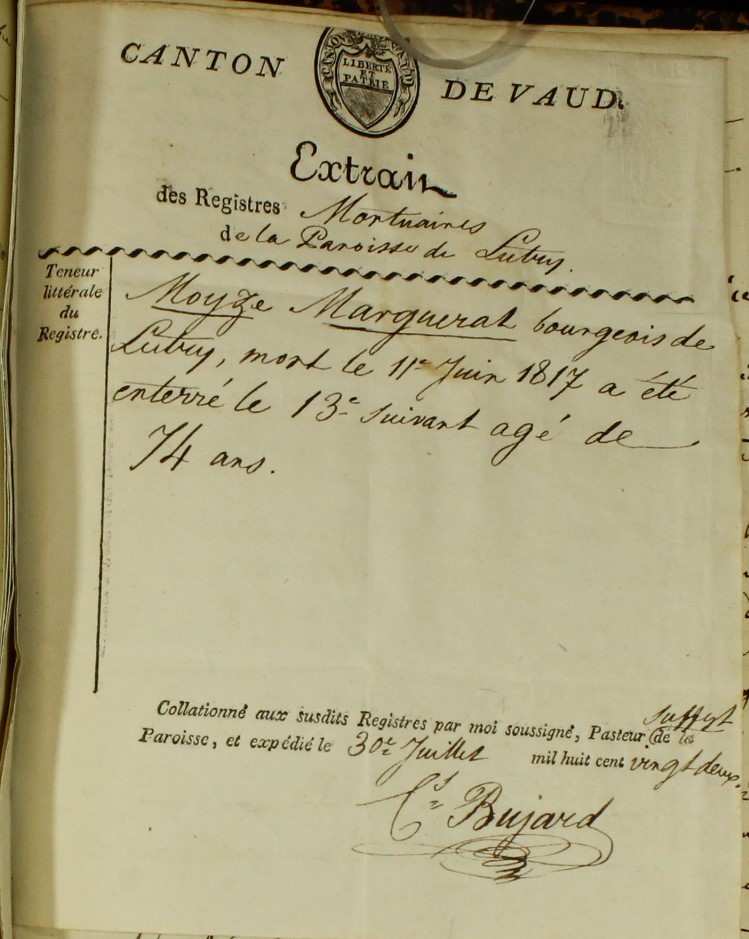 CANTON DE VAUD.
CANTON DE VAUD
LIBERTÉ
ET
PATRIE
Extrait
des Registres Mortuaires
de la Paroisse de Lutry.
Teneur
littérale
du
Registre.
Moyze Marguerat bourgeois de
Lutry, mort le 11e Juin 1817 a été
enterré le 13e suivant agé de
74 ans.
Collationné aux susdits Registres par moi soussigné, Pasteur suffgt de la
Paroisse, et expédié le 30e Juillet mil huit cent vingt deux.
Cs Bujard